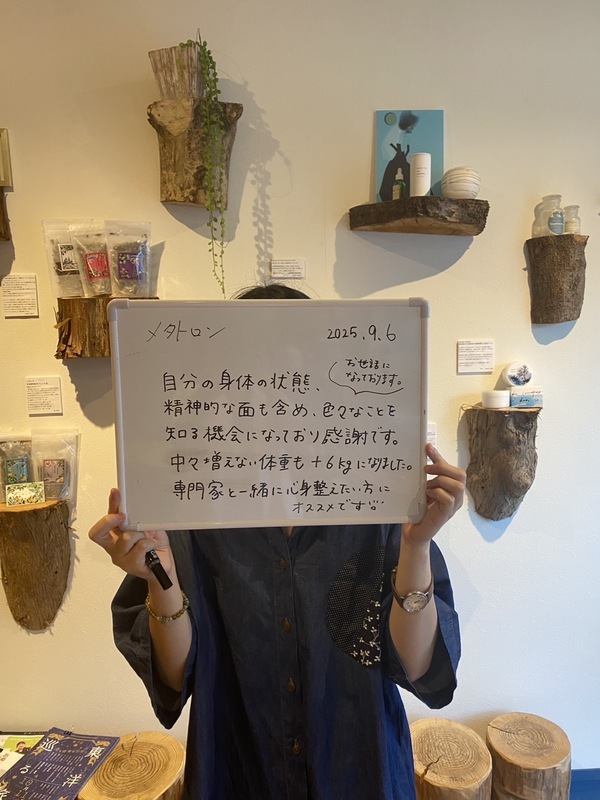 メタトロン
2025.9.6
お世話に
なっております。
自分の身体の状態、
精神的な面も含め、色々なことを
知る機会になっており感謝です。
中々増えない体重も+6kgになりました。
専門家と一緒に心身整えたい方に
オススメです!!
東洋
巡る